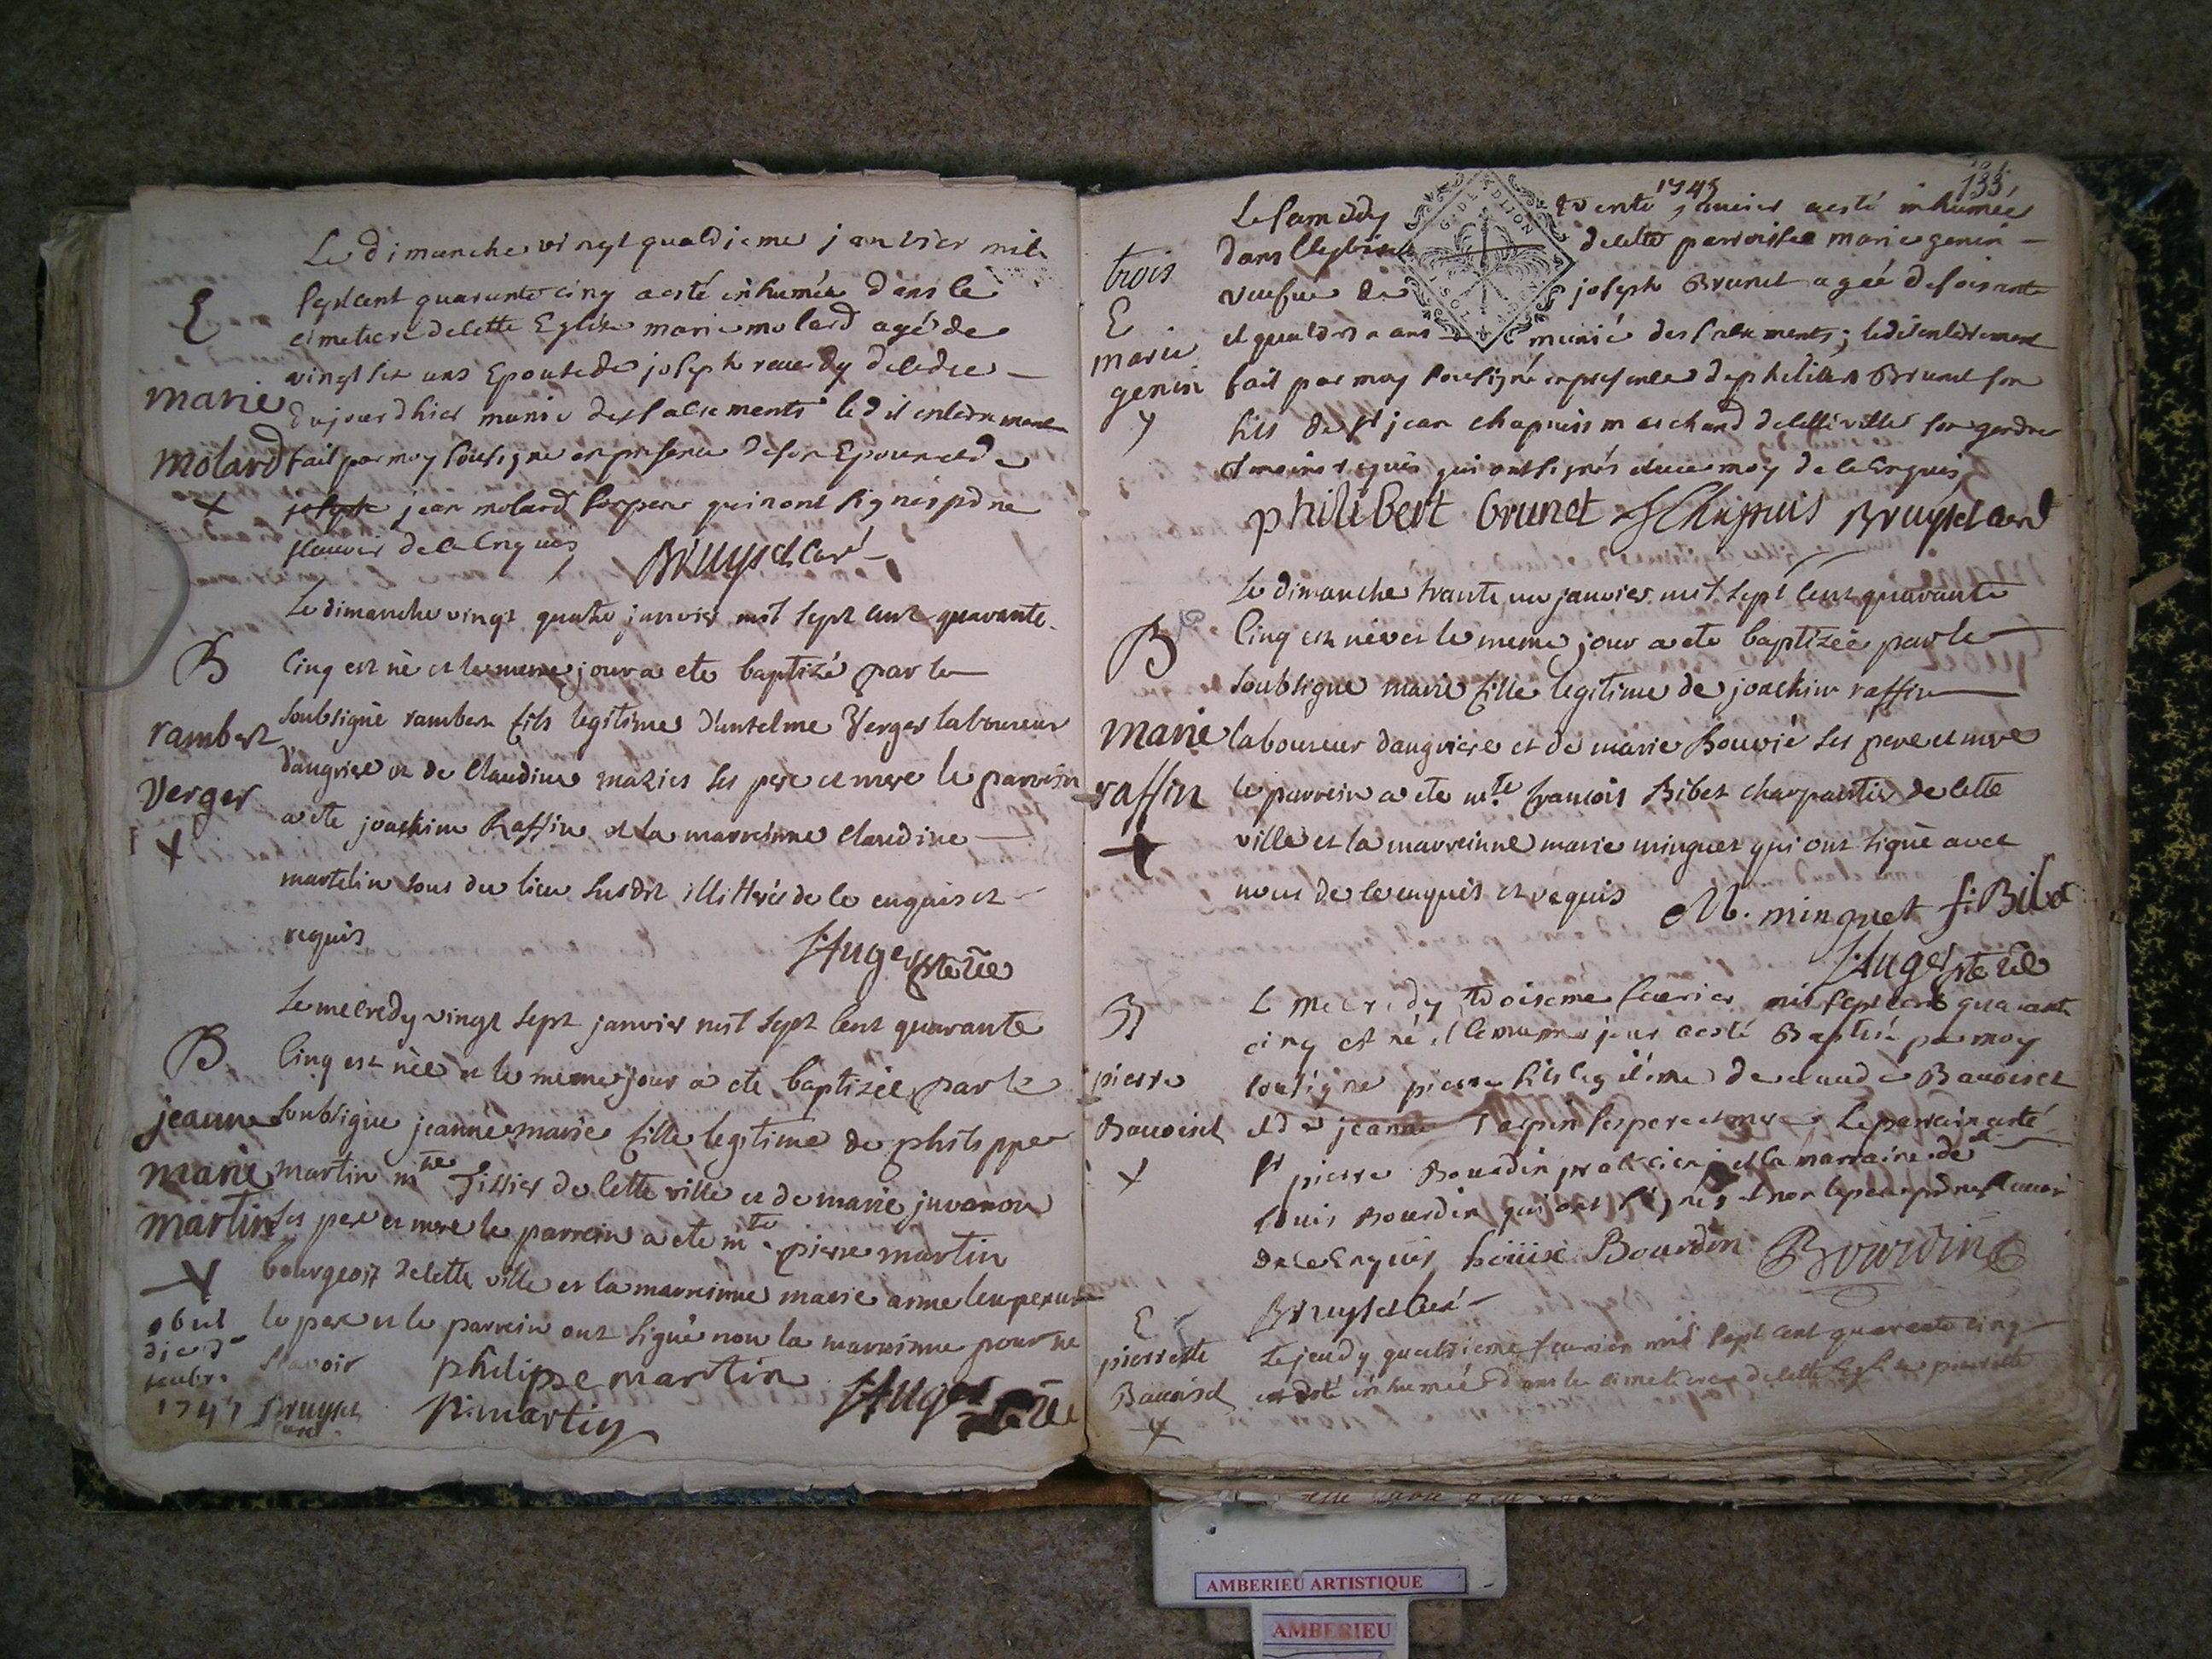 Le dimanche vingt quatrieme janvier mil
sept cent quarante cinq a esté inhumée dans le
cimetiere de cette Eglise marie molard agé de
vingt six ans Epouse de joseph reverdy
dujourdhier munie des sacrements led it enterrement
fait par moy soussigne en presence de son Epoux et de
jean molard son pere qui n ont signés p dne
scavoir de ce Enquis
Bruyset Curé
E
marie
molard
Le dimanche vingt quatre janvier mil sept cent quarante
cinq est nè et le meme jour a ete baptizé par le
soubsigné rambert fils legitime d'antelme Verger laboureur
d'angriere et de Claudine mazier ses pere et mere le parrein
a ete joachim Raffin et la marreinne Claudine
martelin tous du lieu susdit illittrés de ce enquis et
requis
Auger pte vic
B
rambert
Verger
Le mecredy vingt sept janvier mil sept cent quarante
cinq est nèe et le meme jour a ete baptizée par le
soubsigné jeanne marie fille legitime de philippe
martin mtre tissier de cette ville et de marie juvanon
ses pere et mere le parrein a ete mtre pierre martin
bourgeois de cette ville et la marreinne marie anne
le pere et le parrein ont signé non la marreinne pour ne
scavoir
philippe martin
P. martin
Auger
B
jeanne
marie
martin
obiit
die
1747
Bruyset
curé
133
1745
Le samedy trente janvier a esté inhumée
dans l'eglise de cette parroisse marie genin
veufue de joseph Brunet agée de soixante
et quatorze ans munie des sacrements; ledit enterrement
fait par moy soussigné en presence de philibert Brunet son
fils de sr jean chapuis marchand de cette ville son gendre
temoins requis qui ont signés avec moy de ce Enquis
philibert brunet J Chapuis Bruyset Curé
trois
E
marie
genin
Le dimanche trante un janvier mil sept cent quarante
Cinq est nèe et le meme jour a ete baptizée par le
soubsigné marie fille legitime de joachim raffin
laboureur dangriere et de marie Bouvié ses pere et mere
le parrein a ete mtre francois Bibet charpantier de cette
ville et la marreinne marie minguet qui ont signé avec
nous de ce enquis et requis
M. minguet f. Bibet
Auger pte vic
B
marie
raffin
Le Mecredy troisieme feurier mil sept cent quarante
cinq est né et le meme jour a esté Baptisé par moy
soussigné pierre fils legitime de claude Bavoiset
et de jeanne Tarpin ses pere et mere Le parrain a esté
sr pierre Bourdin praticien et la marraine de
Louis Bourdin qui ont signés et non le pere p dne scavoir
de ce Enquis Louise Bourdin Bourdin
Bruyset Curé
B
pierre
Bavoiset
Le jeudy quatrieme feurier mil sept cent quarante cinq
a esté inhumée dans le cimetiere de cette Eglise pierrette
E
pierrette
Bavoiset
G. DE DIJON
AMBERIEU ARTISTIQUE
AMBERIEU